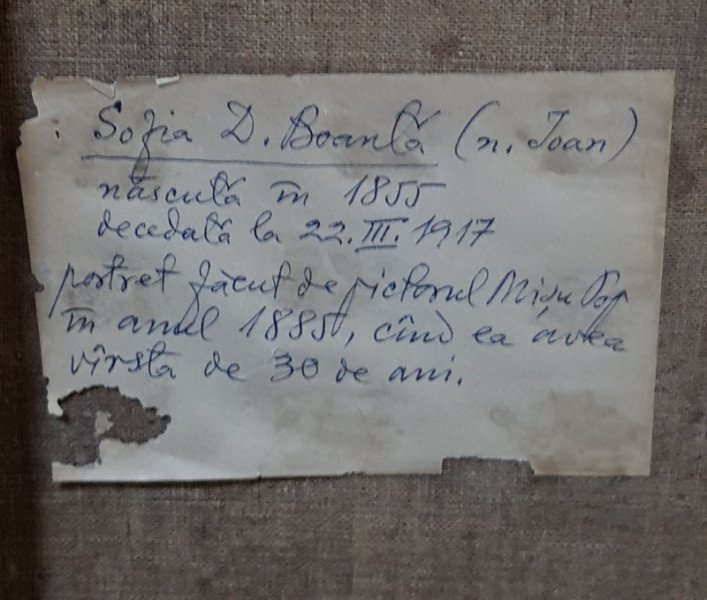 Sofia D. Boantă (n. Ioan)
născută în 1855
decedată la 22. III. 1917
portret făcut de pictorul Mișu Pop
în anul 1885, cînd ea avea
vîrsta de 30 de ani.